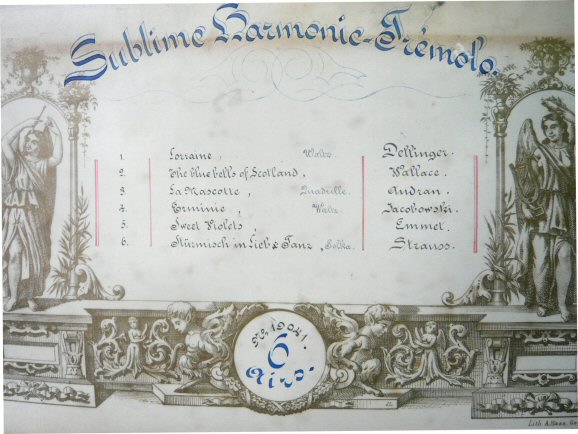 Sublime Harmonie-Trémolo.
1. Lorraine, Waltz. Dellinger.
2. The blue bells of Scotland, Wallace.
3. La Mascotte, Quadrille. Audran.
4. Erminie, Waltz. Jacobowski.
5. Sweet Violets, Emmet.
6. Stürmisch in Lieb & Tanz, Polka. Strauss.
No. 19041.
6
Airs.
Lith. A. Haas